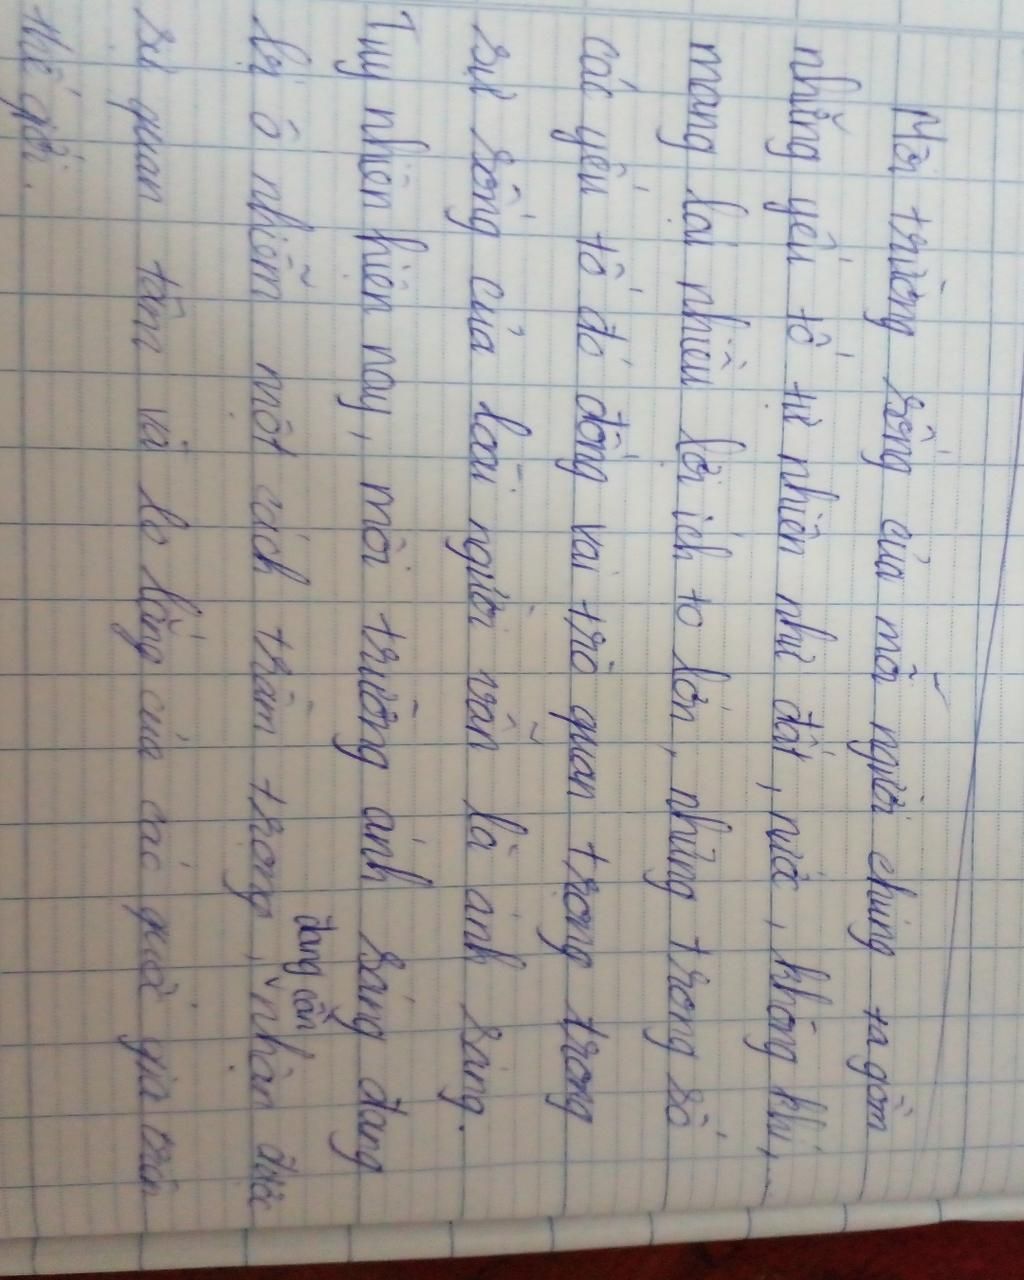 Môi trường sống của mỗi người chúng ta gồm
những yếu tố tự nhiên như đất, nước, không khí,...
mang lại nhiều lợi ích to lớn, nhưng trong số
các yếu tố đó đóng vai trò quan trọng trong
sự sống của loài người vẫn là ánh sáng.
Tuy nhiên hiện nay, môi trường ánh sáng đang
bị ô nhiễm một cách trầm trọng, đang cần nhận được
sự quan tâm và lo lắng của các quốc gia trên
thế giới.